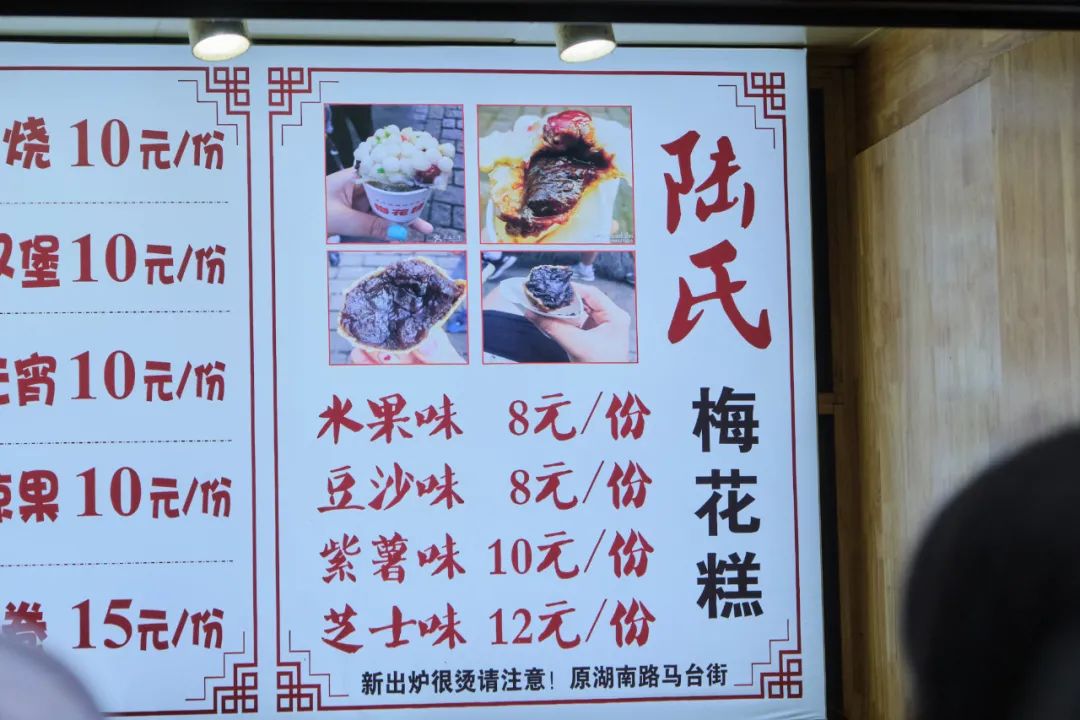 烧 10元/份
汉堡 10元/份
元宵 10元/份
凉果 10元/份
卷 15元/份
陆氏
梅花糕
水果味 8元/份
豆沙味 8元/份
紫薯味 10元/份
芝士味 12元/份
新出炉很烫请注意！原湖南路马台街